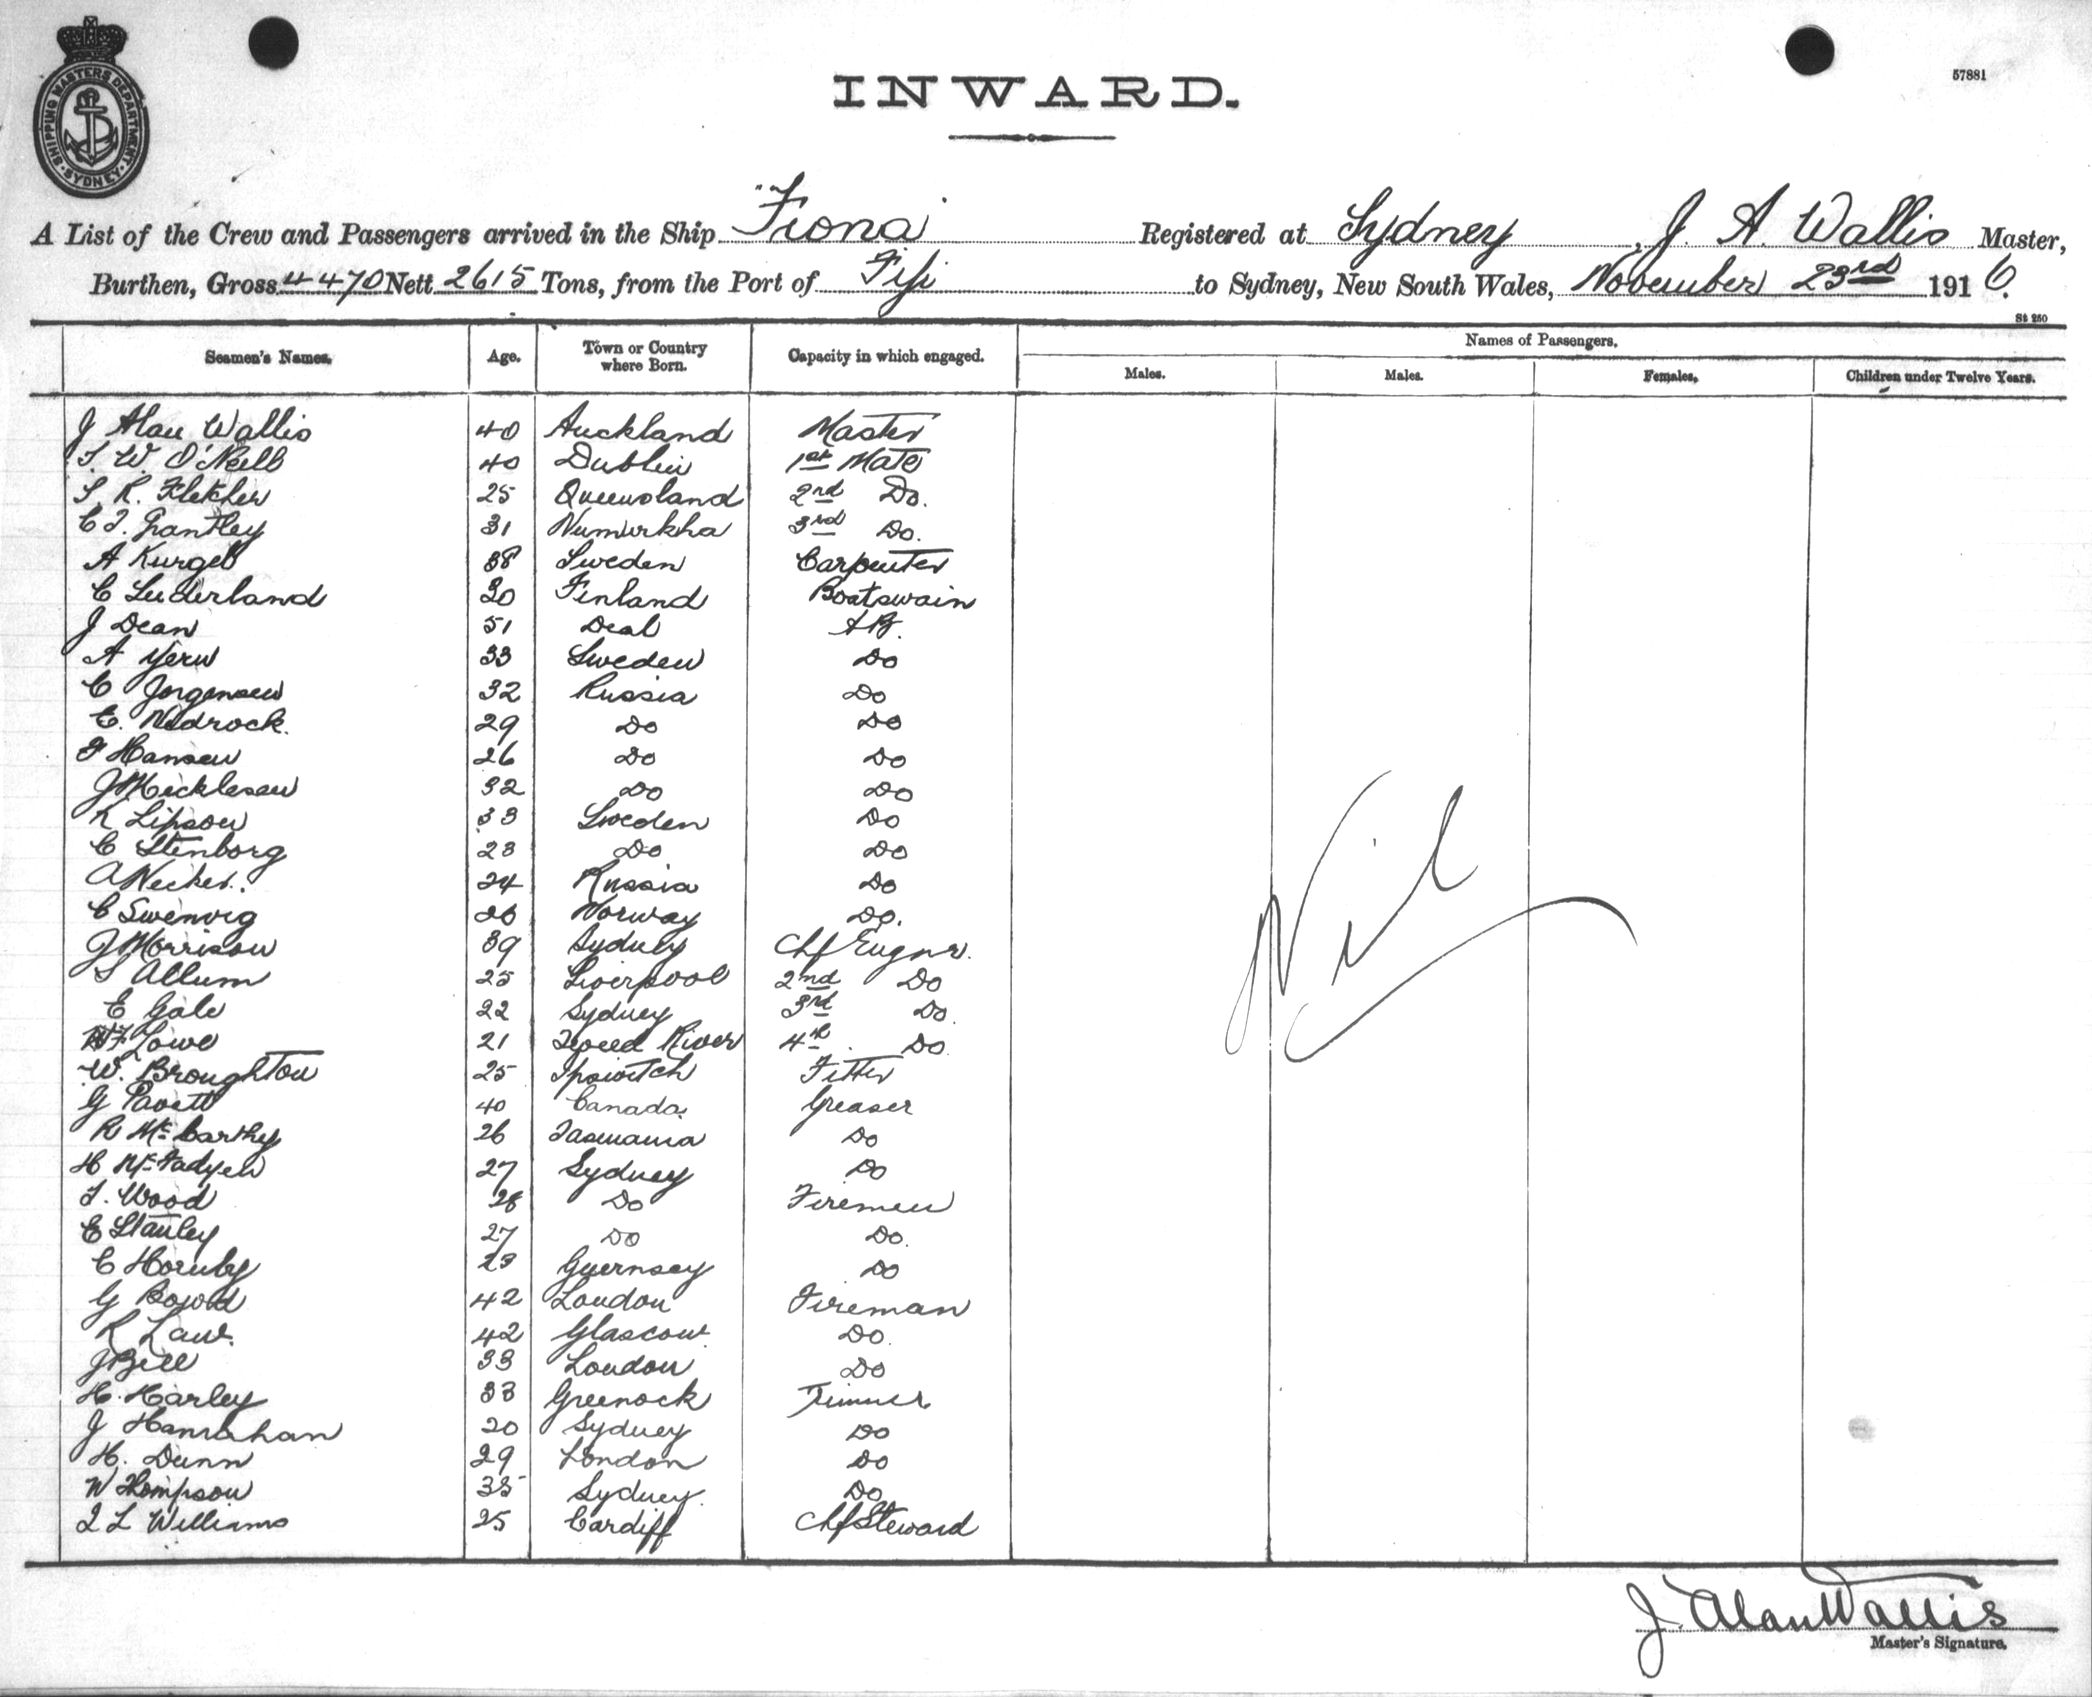 SHIPPING MASTERS DEPARTMENT SYDNEY
57881
INWARD.
A List of the Crew and Passengers arrived in the Ship "Fiona" Registered at Sydney, J. A. Wallis Master,
Burthen, Gross 4470 Nett 2615 Tons, from the Port of Fiji to Sydney, New South Wales, November 23rd 1916.
St 250
Seamen's Names. Age. Town or Country where Born. Capacity in which engaged. Names of Passengers.
Males. Males. Females. Children under Twelve Years.
J Alan Wallis 40 Auckland Master
W. O'Neill 40 Dublin 1st Mate
R. Fletcher 25 Queensland 2nd Do.
C T. Grantley 31 Numurkha 3rd Do.
A Kurgel 38 Sweden Carpenter
C Luderland 30 Finland Boatswain
J Dean 51 Deal AB.
A 33 Sweden Do
C Jorgensen 32 Russia Do
E. Nedrock. 29 Do Do
F Hansen 26 Do Do
J Micklesen 32 Do Do
K Lipsow 33 Sweden Do
C Stenborg 23 Do Do
A Necker. 24 Russia Do
C Swenvig 26 Norway Do.
J Morrison 39 Sydney Chf Engnr.
S Allum 25 Liverpool 2nd Do
E Gale 22 Sydney 3rd Do.
Lowe 21 Tweed River 4th Do
W. Broughton 25 Ipswitch Fitter
G Pavett 40 Canada. Greaser
R McCarthy 26 Tasmania Do
H McFadyen 27 Sydney Do
Wood 28 Do Firemen
E Stanley 27 Do Do.
C Hornby 23 Guernsey Do
G Boyod 42 London Fireman
R Law. 42 Glascow. Do.
J Bell 33 London Do
H. Harley 33 Greenock Trimmer
J Hanrahan 20 Sydney Do
H. Dunn 29 London Do
W Thompson 35 Sydney. Do
L Williams 25 Cardiff Chf Steward
Nil
J. Alan Wallis
Master's Signature.